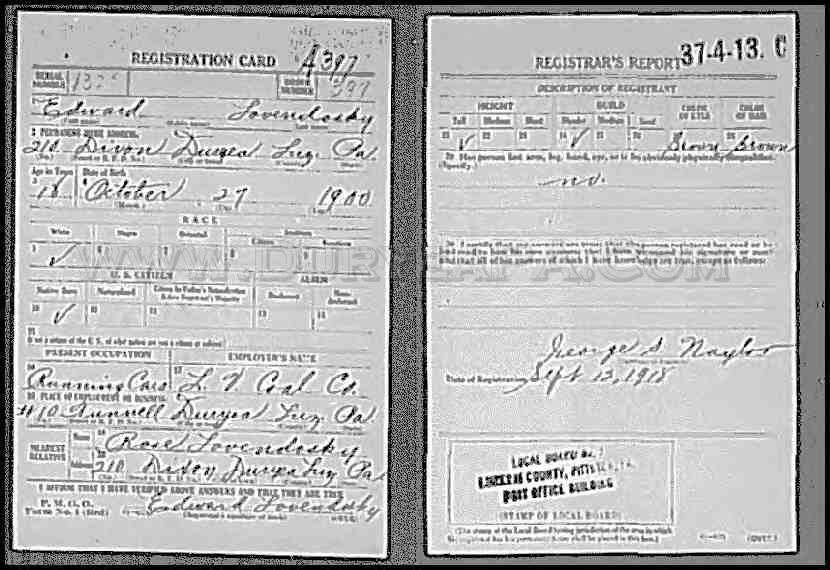 REGISTRATION CARD A397
SERIAL NUMBER ORDER NUMBER 397
1 Edward Lovendosky
(First name) (Middle name) (Last name)
2 PERMANENT HOME ADDRESS:
210 Dixon Duryea Luz. Pa.
Age in Years Date of Birth
18 October 27 1900
(Month.) (Day.) (Year.)
RACE
White Negro Oriental Indian
Citizen Noncitizen
5 ✓ 6 7 8 9
U. S. CITIZEN ALIEN
Native Born Naturalized Citizen by Father's Naturalization Before Registrant's Majority Declarant Non-declarant
10 ✓ 11 12 13 14
15
If not a citizen of the U. S., of what nation are you a citizen or subject?
PRESENT OCCUPATION EMPLOYER'S NAME
16 Running Cars 17 L V Coal Co.
18 PLACE OF EMPLOYMENT OR BUSINESS:
#10 Duryea Luz. Pa.
NEAREST RELATIVE
Name 19 Rose Lovendosky
Address 20 210 Dixon Duryea Luz. Pa.
I AFFIRM THAT I HAVE VERIFIED ABOVE ANSWERS AND THAT THEY ARE TRUE
P. M. G. O.
Form No. 1 (Red) Edward Lovendosky
(Registrant's signature or mark) (OVER)
REGISTRAR'S REPORT 37-4-13. C
DESCRIPTION OF REGISTRANT
HEIGHT BUILD COLOR OF EYES COLOR OF HAIR
Tall Medium Short Slender Medium Stout
21 ✓ 22 23 24 ✓ 25 26 27 Brown 28 Brown
29 Has person lost arm, leg, hand, eye, or is he obviously physically disqualified?
(Specify.)
no.
30 I certify that my answers are true; that the person registered has read or has
had read to him his own answers; that I have witnessed his signature or mark
and that all of his answers of which I have knowledge are true, except as follows:
WWW.DURYEAPA.COM
George S. Naylor
Date of Registration Sept 12, 1918
LOCAL BOARD No.
LUZERNE COUNTY, PITTSTON, PA.
POST OFFICE BUILDING
(STAMP OF LOCAL BOARD)
(The stamp of the Local Board having jurisdiction of the area in which
the registrant has his permanent home shall be placed in this box.)
(OVER)